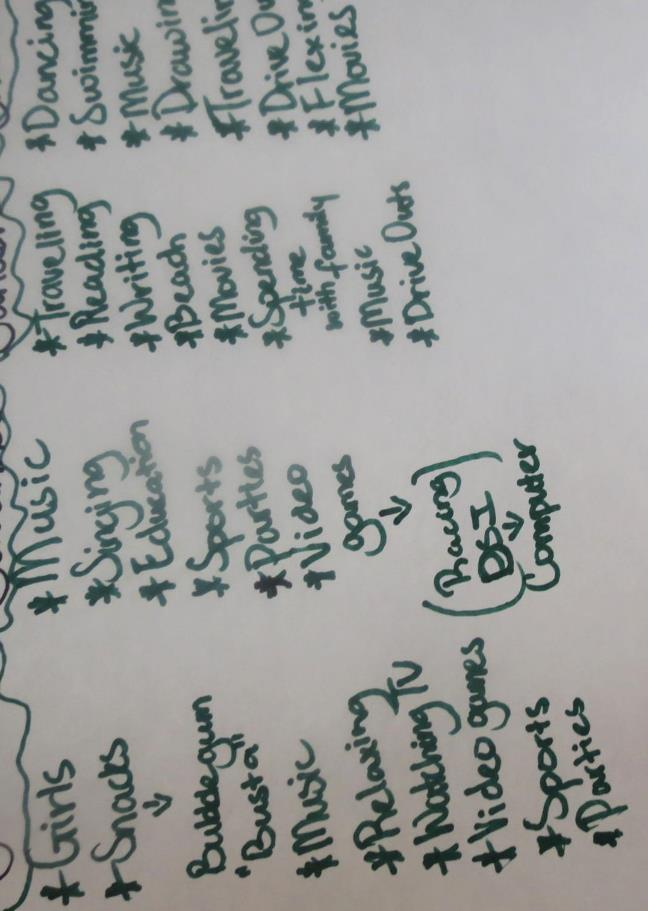 * Girls
* Snacks
↓
Bubblegum
"Busta"
* Music
* Relaxing
* Watching TV
* Video games
* Sports
* Parties
* Music
* Singing
* Education
* Sports
* Parties
* Video
games
↓
(Racing)
DSI
↓
Computer
* Traveling
* Reading
* Writing
* Beach
* Movies
* Spending
time
with family
* Music
* Drive Outs
* Dancing
* Swimmin
* Music
* Drawin
* Travelin
* Drive Ou
* Flexin
* Movies